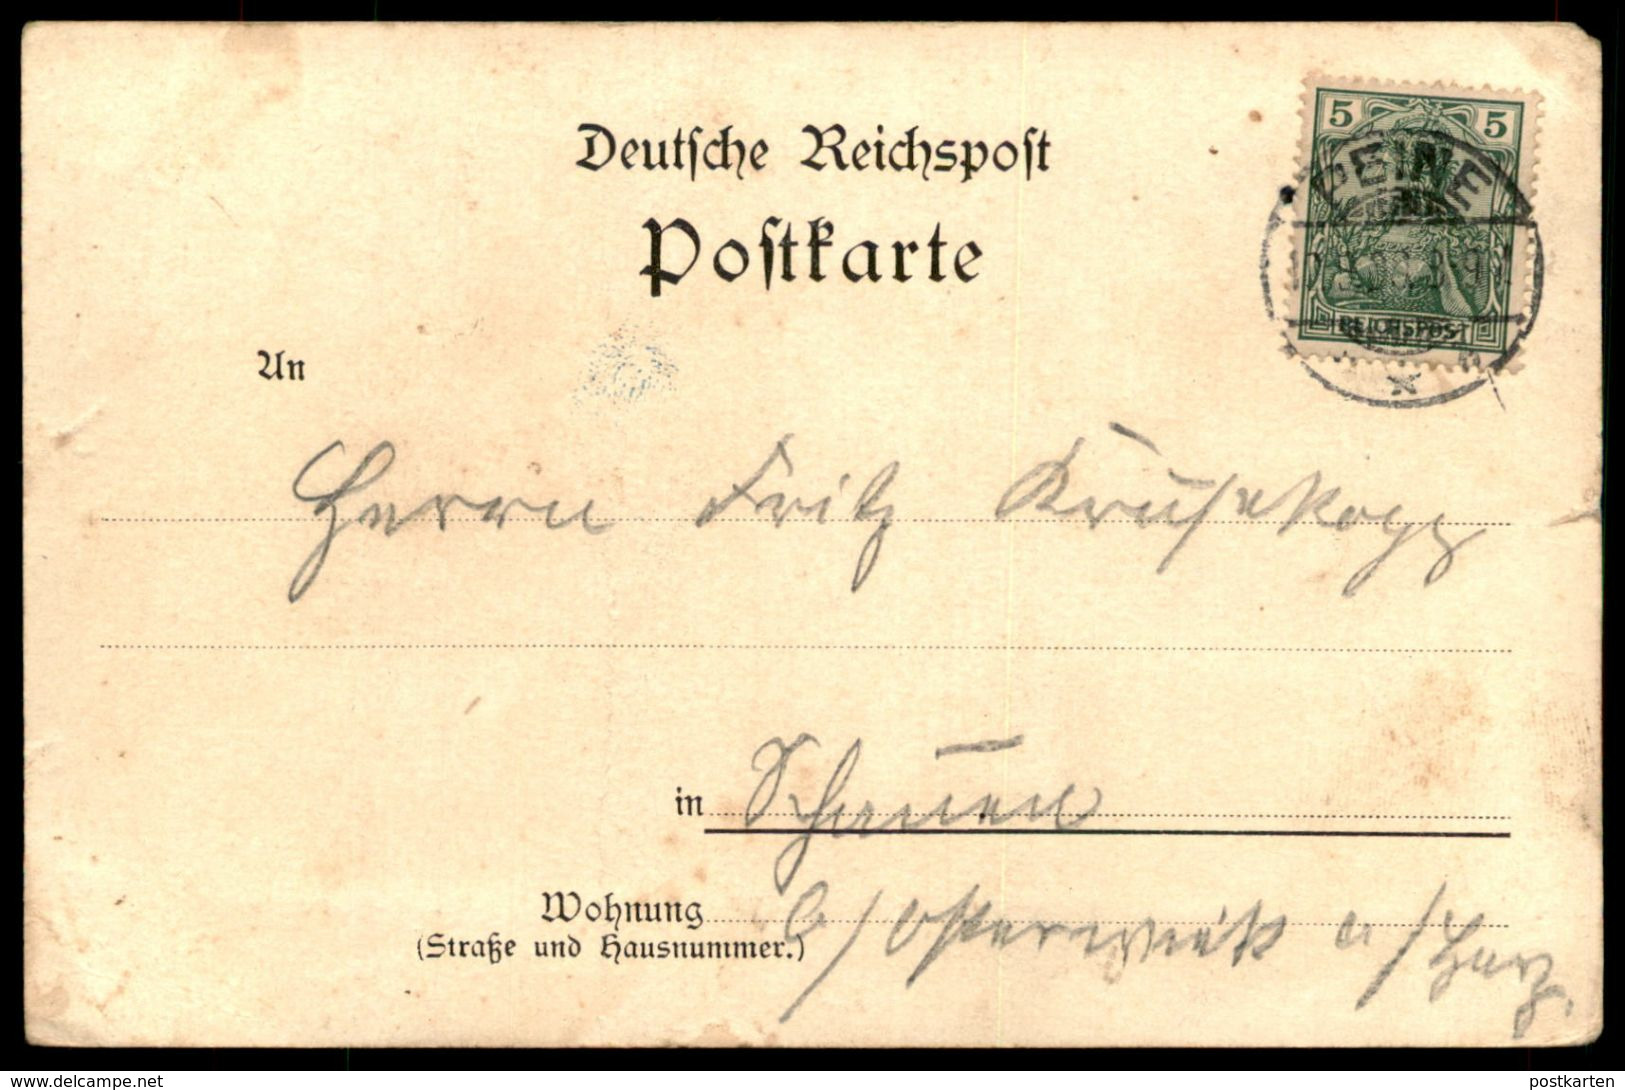 Deutsche Reichspost
Postkarte
5 5
PEINE
REICHSPOST
An
Herrn Fritz Krüsekopf
in Schauen
Wohnung b/Osterwieck a/Harz.
(Straße und Hausnummer.)
delcampe.net
postkarten